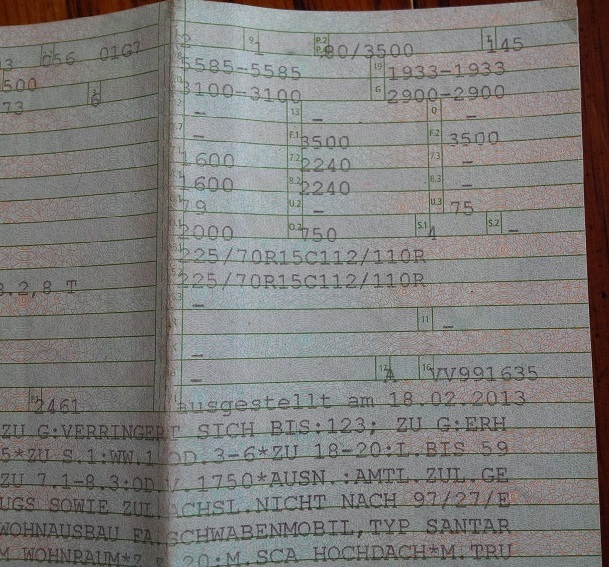 3 056 01G7 2 9 1 P.2 80/3500 T 145
500 5585-5585 19 1933-1933
73 6 3100-3100 G 2900-2900
- 13 - Q -
- F.1 3500 F.2 3500
1600 7.2 2240 7.3 -
1600 8.2 2240 8.3 -
79 U.2 - U.3 75
2000 O.2 750 S.1 4 S.2 -
225/70R15C112/110R
.2,8 T 225/70R15C112/110R
-
11 -
-
- A 16 VV991635
2461 ausgestellt am 18.02.2013
ZU G:VERRINGERT SICH BIS:123; ZU G:ERH
5*ZU S.1:WW.1 OD.3-6*ZU 18-20:L.BIS 59
ZU 7.1-8.3:OD. 1750*AUSN.:AMTL.ZUL.GE
UGS SOWIE ZUL. ACHSL.NICHT NACH 97/27/E
WOHNAUSBAU FA.SCHWABENMOBIL,TYP SANTAR
M WOHNRAUM* 20:M.SCA HOCHDACH*M.TRU